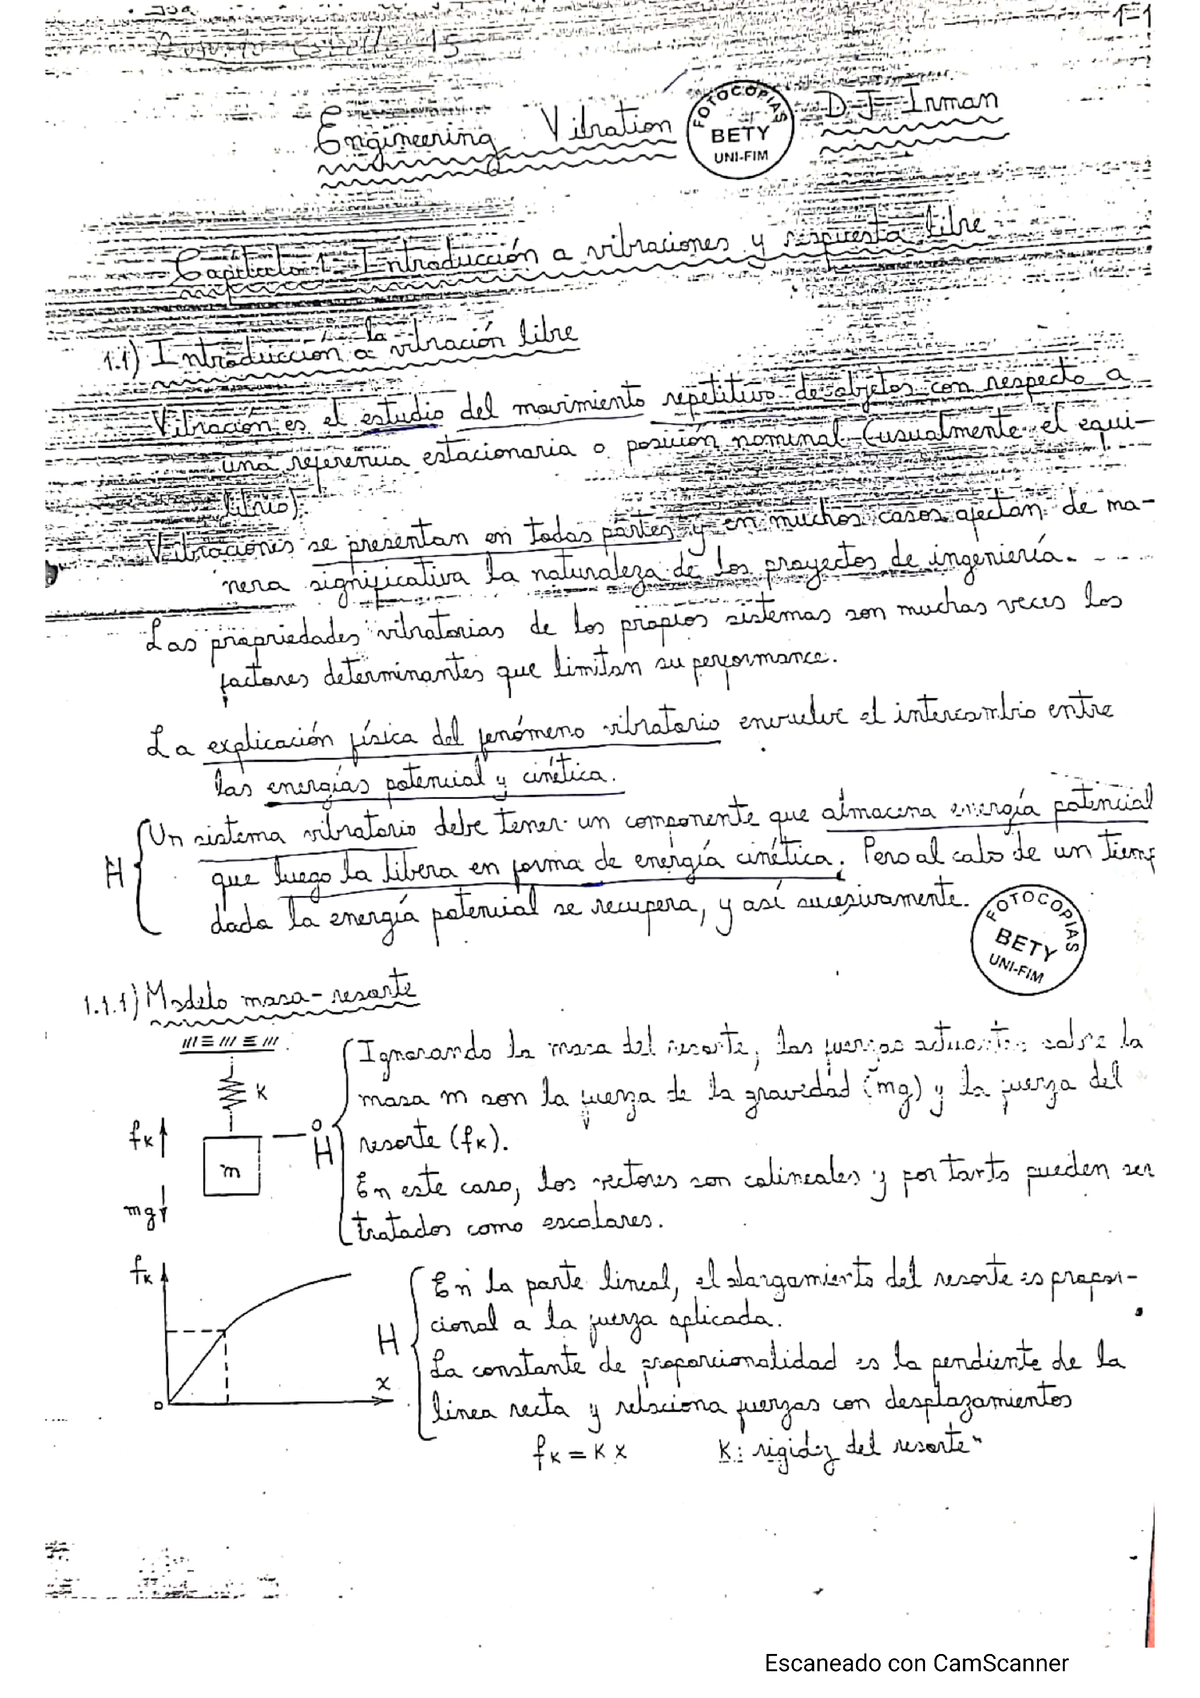 1-1
Engineering Vibration
FOTOCOPIAS
BETY
UNI-FIM
D J Inman
Capítulo 1 Introducción a vibraciones y respuesta libre
1.1) Introducción a la vibración libre
Vibración es el estudio del movimiento repetitivo de objetos con respecto a
una referencia estacionaria o posición nominal (usualmente el equi-
librio).
Vibraciones se presentan en todas partes y en muchos casos afectan de ma-
nera significativa la naturaleza de los proyectos de ingeniería.
Las propriedades vibratorias de los propios sistemas son muchas veces los
factores determinantes que limitan su performance.
La explicación física del fenómeno vibratorio envuelve el intercambio entre
las energías potencial y cinética.
Un sistema vibratorio debe tener un componente que almacena energía potencial
H
que luego la libera en forma de energía cinética. Pero al cabo de un tiemp
dada la energía potencial se recupera, y así sucesivamente.
FOTOCOPIAS
BETY
UNI-FIM
1.1.1) Modelo masa-resorte
Ignorando la masa del resorte, las fuerzas actuantes sobre la
K
masa m son la fuerza de la gravedad (mg) y la fuerza del
fK
0
H
resorte (fK).
m
En este caso, los vectores son colineales y por tanto pueden ser
mg
tratados como escalares.
fK
En la parte lineal, el alargamiento del resorte es propor-
cional a la fuerza aplicada.
H
La constante de proporcionalidad es la pendiente de la
x
0
linea recta y relaciona fuerzas con desplazamientos
fK = K x K: rigidez del resorte
Escaneado con CamScanner